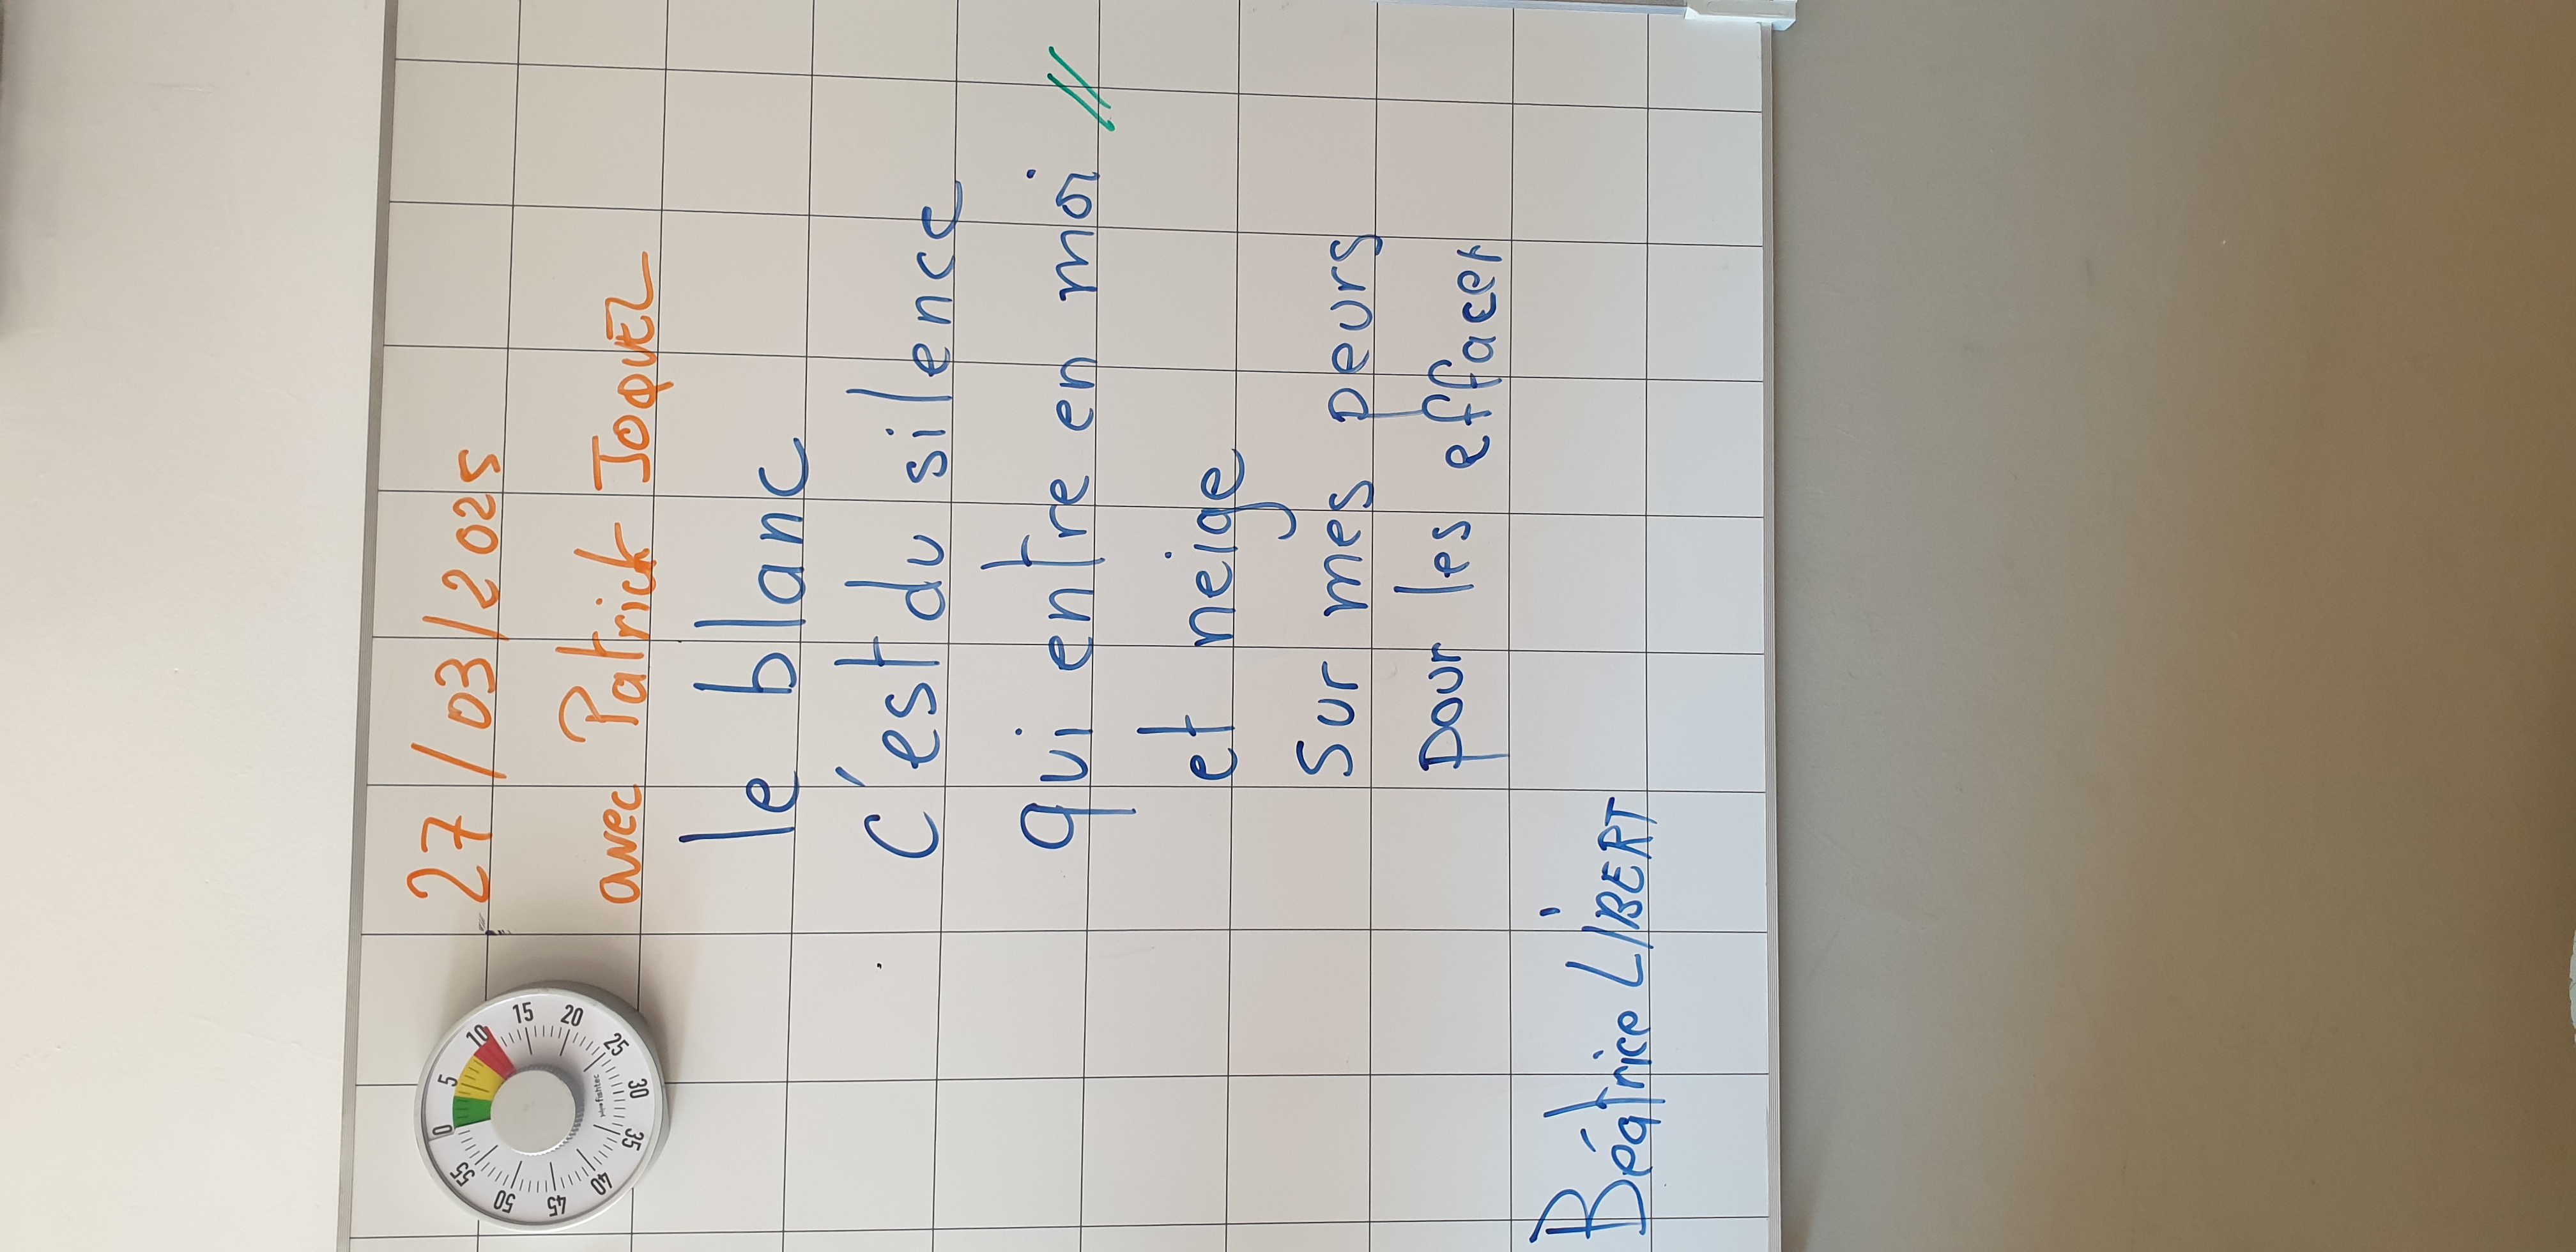 27/03/2025
avec Patrick JOQUEL
le blanc
C'est du silence
qui entre en moi //
et neige
sur mes peurs
pour les effacer
Béatrice LIBERT
0 5 10 15 20 25 30 35 40 45 50 55